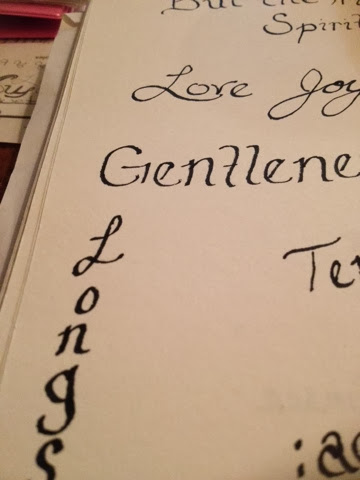 But the
Spirit
Love Joy
Gentlene
L
o
n
g
s
Te